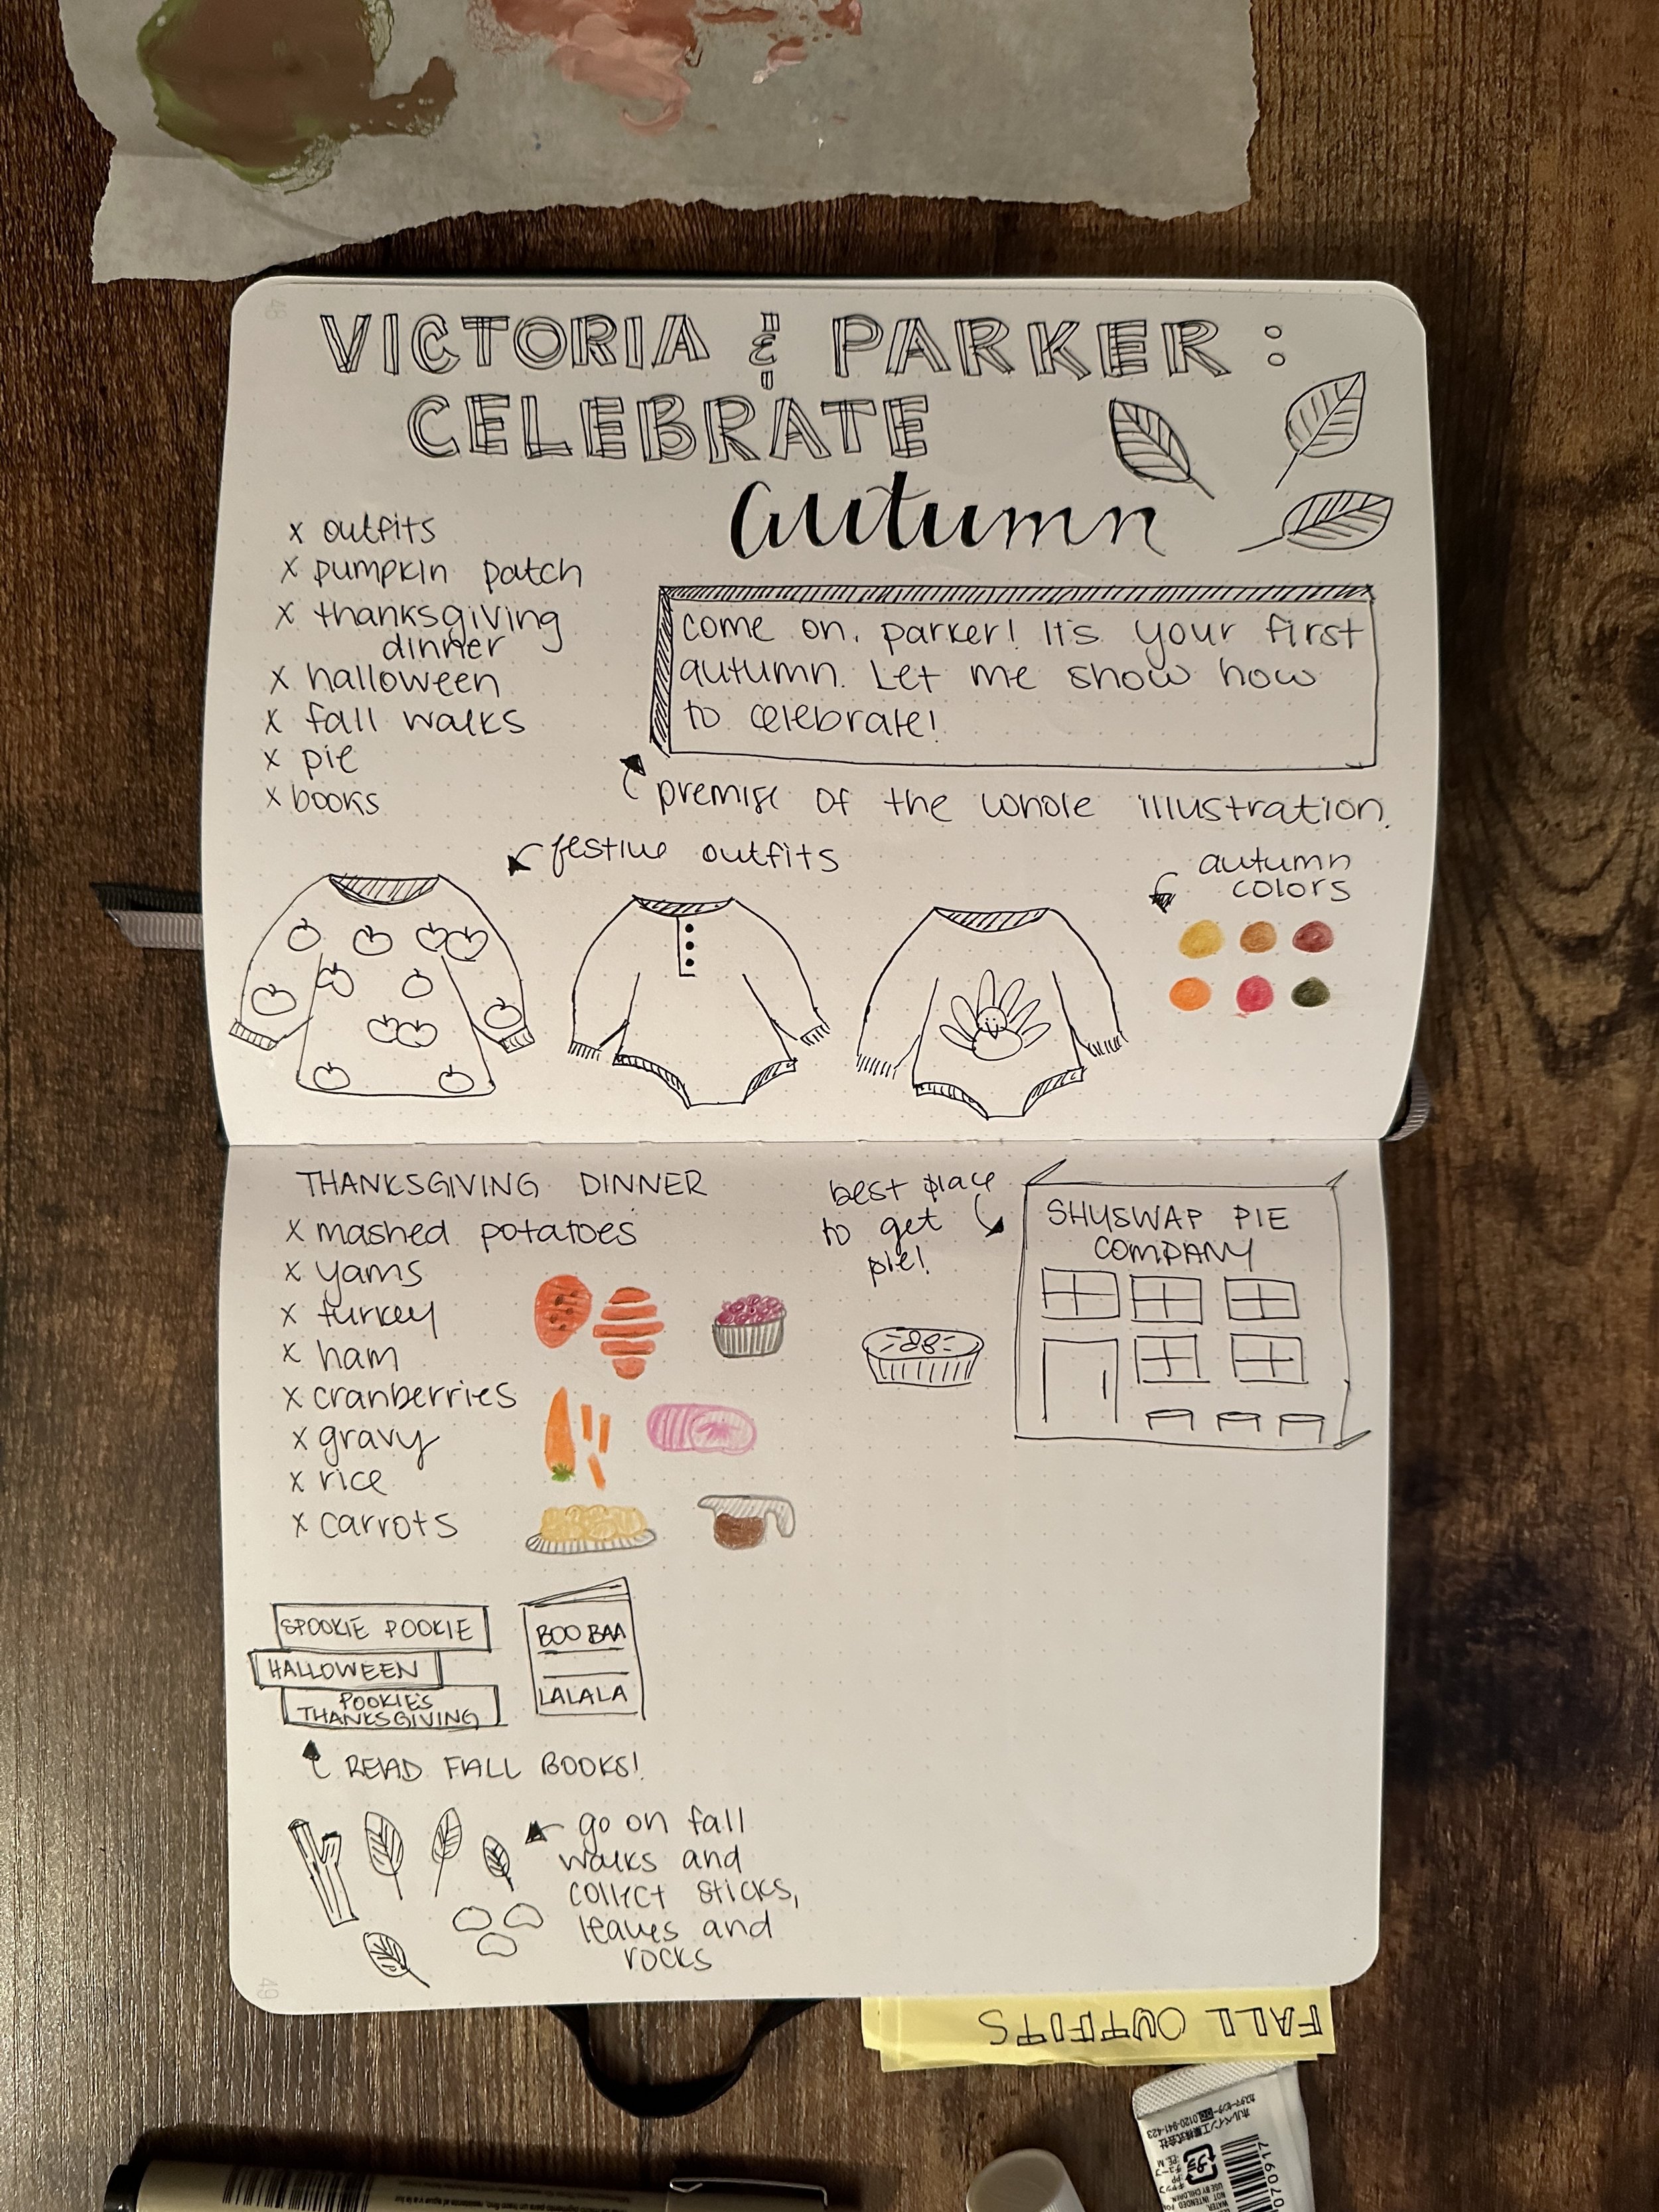 48
VICTORIA & PARKER:
CELEBRATE
autumn
x outfits
x pumpkin patch
x thanksgiving
dinner
x halloween
x fall walks
x pie
x books
come on, parker! It's your first
autumn. Let me show how
to celebrate!
premise of the whole illustration.
festive outfits
autumn
colors
THANKSGIVING DINNER
x mashed potatoes
x yams
x turkey
x ham
x cranberries
x gravy
x rice
x carrots
best place
to get
pie!
SHUSWAP PIE
COMPANY
SPOOKIE POOKIE
HALLOWEEN
POOKIE'S
THANKSGIVING
BOO BAA
LALALA
READ FALL BOOKS!
go on fall
walks and
collect sticks,
leaves and
rocks
49
FALL OUTFITS
ホルベイン工業株式会社
カスタマーセンター 0120-941-423
070917